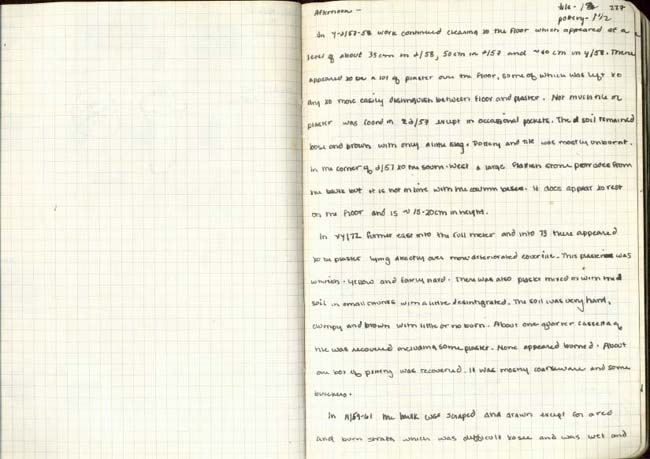 Afternoon -
tile - 1
237
pottery - 1 1/2
In Y- /57-58 work continued clearing to the floor which appeared at a
level of about 35cm in /58, 50cm in /57 and ~40 cm in y/58. There
appeared to be a lot of plaster over the floor, some of which was left to
dry to more easily distinguish between floor and plaster. Not much tile or
plaster was found in /57 except in occasional pockets. The soil remained
loose and brown with only a little slag. Pottery and tile was mostly unburnt.
In the corner of /57 to the south-west a large flattish stone protrudes from
the baulk but it is not in line with the column bases. It does appear to rest
on the floor and is ~ 15-20cm in height.
In xy/72 further east into the full meter and into 73 there appeared
to be plaster lying directly over more deteriorated . This plaster was
whitish-yellow and fairly hard. There was also plaster mixed in with the
soil in small chunks with a little desintigrated. The soil was very hard,
clumpy and brown with little or no burn. About one quarter cassetta of
tile was recovered including some plaster. None appeared burned. About
one box of pottery was recovered. It was mostly coarseware and some
bucchero.
In /59-61 the baulk was scraped and drawn except for a red
and burn strata which was difficult to see and was wet and